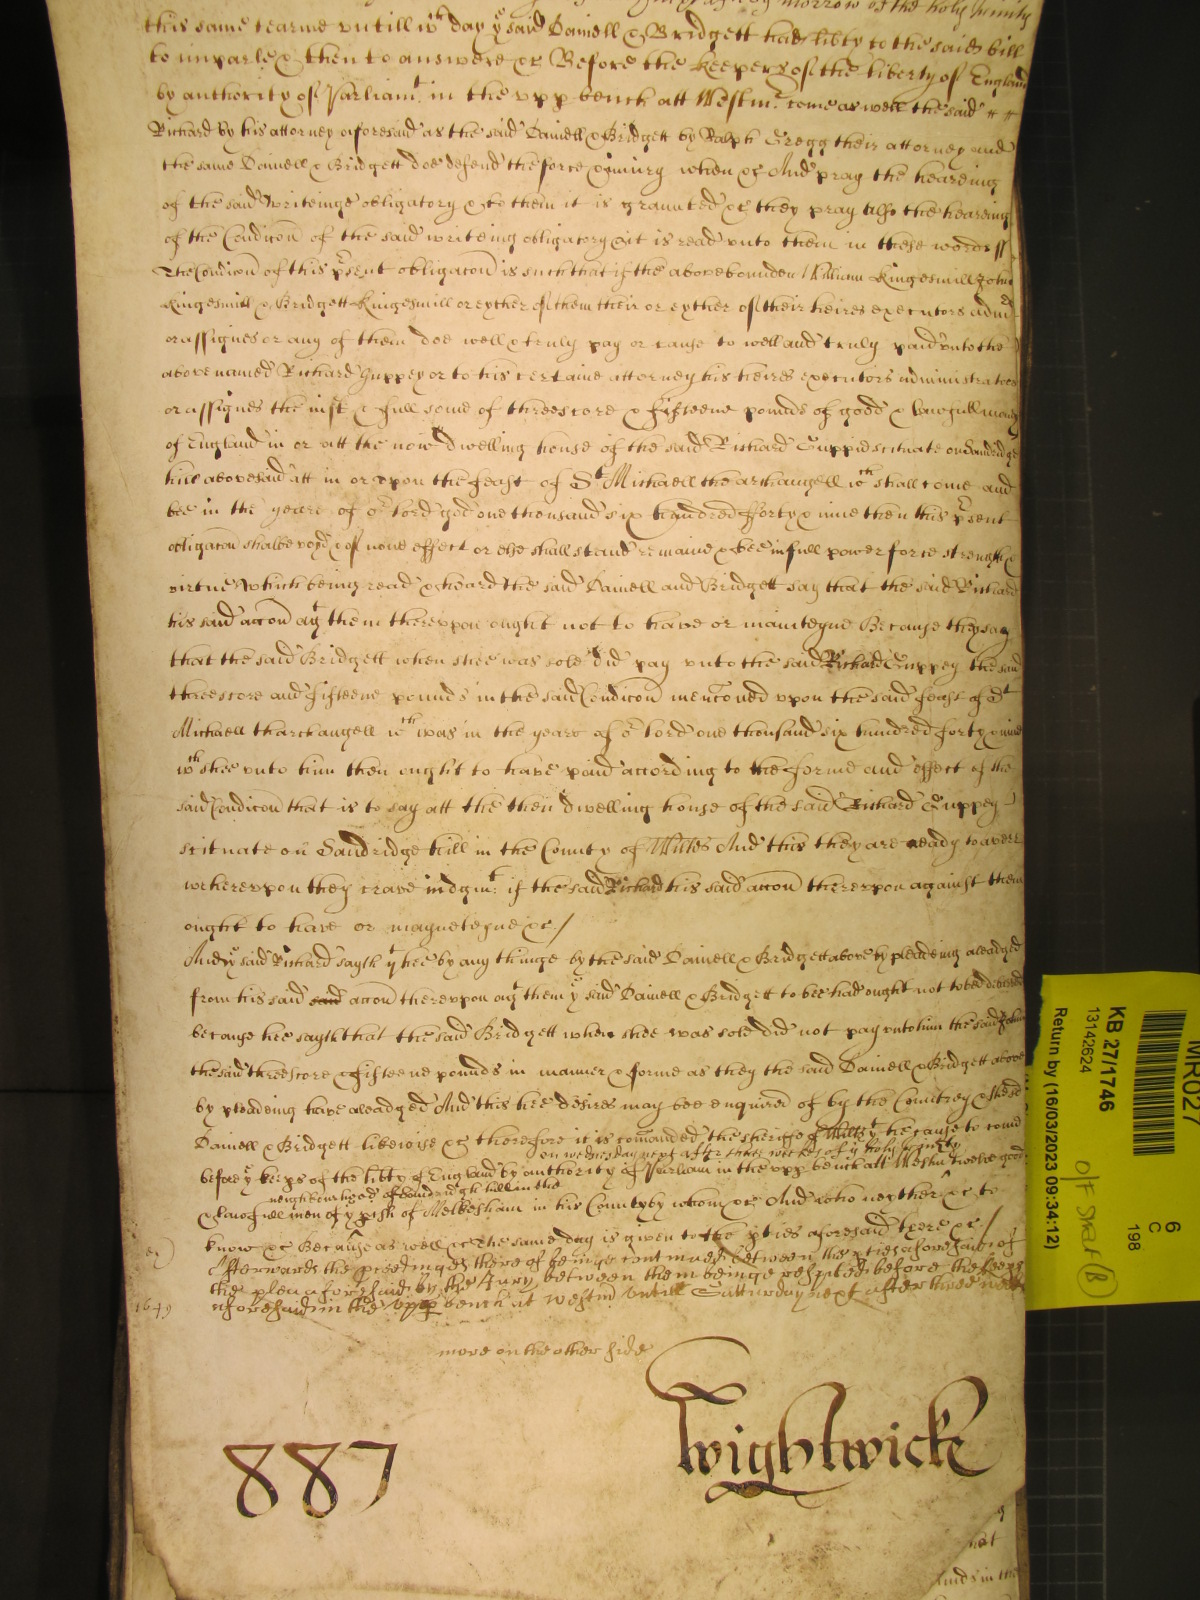 morrow of the holy Trinity
this same tearme untill wch day ye said Daniell & Bridgett had libty to the said bill
to imparle & then to answere &c Before the keepers of the liberty of England
by authority of Parliamt. in the upp bench att Westmr. come as well the said
Richard by his attorney aforesaid as the said Daniell & Bridgett by Ralph Gregg their attorney and
the same Daniell & Bridgett doe defend the force & iniury when &c And pray the heareing
of the said writeinge obligatory & to them it is graunted &c they pray also the heareing
of the Condicon of the said writeing obligatory & it is read unto them in these words
The Condicon of this prsent obligacon is such that if the abovebounden William Kingesmill John
Kingesmill & Bridgett Kingesmill or eyther of them their or eyther of their heires executors admrs
or assignes or any of them doe well & truly pay or cause to well and truly paid unto the
above named Richard Guppey or to his certaine attorney his heires executors administrators
or assignes the iust & full some of threescore & fifteene pounds of good & lawfull money
of England in or att the now dwelling house of the said Richard Guppie scituate on Sandridge
hill abovesaid att in or upon the feast of St Michaell the archangell wch shall come and
bee in the yeare of or lord god one thousand six hundred fforty & nine then this prsent
obligacon shalbe voyd & of none effect or else shall stand remaine & bee in full power force strength &
virtue Which being read & heard the said Daniell and Bridgett say that the said Richard
his said accon agt them thereupon ought not to have or mainteyne Because they say
that the said Bridgett when shee was sole did pay unto the said Richard Guppey the said
threescore and fifteene pounds in the said Condicon menconed upon the said feast of St
Michaell tharchangell wch was in the yeare of or lord one thousand six hundred forty & nine
wch shee unto him then ought to have paid according to the forme and effect of the
said Condicon that is to say att the then dwelling house of the said Richard Guppey
scituate on Sandridge hill in the County of Wiltes And this they are ready to averr
whereupon they crave iudgmt. if the said Richard his said accon thereupon against them
ought to have or magneteyne &c/
And ye said Richard sayth yt hee by any thinge by the said Daniell & Bridgett above by pleadeing aleadged
from his said said accon thereupon agt them ye said Daniell & Bridgett to bee had ought not to bed debarred
because hee sayth that the said Bridgett when shee was sole did not pay unto him the said Richard
the said threescore & fifteene pounds in manner & forme as they the said Daniell & Bridgett above
by pleadeing have aleadged And this hee desires may bee enquired of by the Countrey & the said
Daniell & Bridgett likewise &c therefore it is comanded the sheriffe of Wiltes yt he cause to come
on wednesday next after three weekes of ye holy Trinity
before ye keeprs of the libty of England by authority of Parliam in the upp bench att Westmr twelve good
neighbourhood of Sandridgh hill in the
& lawfull men of ye pish of Melkesham in his County by whom &c And who neyther &c to
know &c Because as well &c The same day is given to the pties aforesaid there &c/
Afterwards the proceedinges thereof beinge continued betweene the pties aforesaid of
the plea aforesaid by the Jury betweene them beinge respited before the keeprs
1649
aforesaid in the upp bench at Westm untill Satturday next after three weekes
more on the other side
887
Wightwicke
MR027
KB 27/1746
13142624
Return by (16/03/2023 09:34:12)
6
C
198